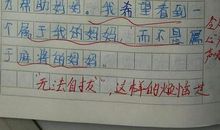 帮助妈妈。我希望看到一
个属于我的妈妈，而不是属
于麻将的妈妈。
“无法自拔”，这样的烦恼也